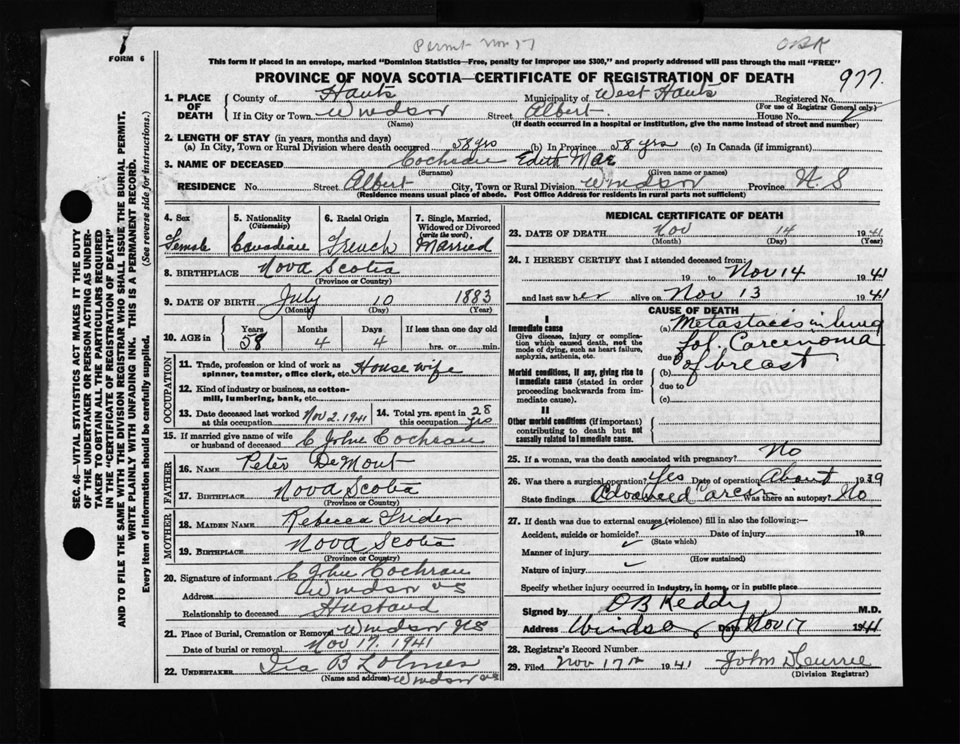 Permit Nov 17
OBR
FORM 6
This form if placed in an envelope, marked "Dominion Statistics—Free, penalty for improper use $300," and properly addressed will pass through the mail "FREE"
PROVINCE OF NOVA SCOTIA—CERTIFICATE OF REGISTRATION OF DEATH
977.
1. PLACE OF DEATH { County of Hants Municipality of West Hants Registered No.
(For use of Registrar General only)
If in City or Town Windsor Street Albert House No.
(Name) (If death occurred in a hospital or institution, give the name instead of street and number)
2. LENGTH OF STAY (in years, months and days)
(a) In City, Town or Rural Division where death occurred 58 yrs (b) In Province 58 yrs (c) In Canada (if immigrant)
3. NAME OF DECEASED Cochran Edith Mae
(Surname) (Given name or names)
RESIDENCE No. Street Albert City, Town or Rural Division Windsor Province N.S
(Residence means usual place of abode. Post Office Address for residents in rural parts not sufficient)
4. Sex Female
5. Nationality (Citizenship) Canadian
6. Racial Origin French
7. Single, Married, Widowed or Divorced (write the word) Married
8. BIRTHPLACE Nova Scotia
(Province or Country)
9. DATE OF BIRTH July 10 1883
(Month) (Day) (Year)
10. AGE in { Years 58 Months 4 Days 4 If less than one day old hrs. or min.
OCCUPATION
11. Trade, profession or kind of work as spinner, teamster, office clerk, etc. House wife
12. Kind of industry or business, as cotton-mill, lumbering, bank, etc.
13. Date deceased last worked at this occupation Nov 2. 1941
14. Total yrs. spent in this occupation 28 yrs
15. If married give name of wife or husband of deceased C John Cochran
FATHER
16. NAME Peter DeMont
17. BIRTHPLACE Nova Scotia
(Province or Country)
MOTHER
18. MAIDEN NAME Rebecca
19. BIRTHPLACE Nova Scotia
(Province or Country)
20. Signature of informant C John Cochran
Address Windsor NS
Relationship to deceased Husband
21. Place of Burial, Cremation or Removal Windsor NS
Date of burial or removal Nov 17, 1941
22. UNDERTAKER Ira B
(Name and address) Windsor NS
MEDICAL CERTIFICATE OF DEATH
23. DATE OF DEATH Nov 14 1941
(Month) (Day) (Year)
24. I HEREBY CERTIFY that I attended deceased from:
19 to Nov 14 1941
and last saw her alive on Nov 13 1941
CAUSE OF DEATH
I
Immediate cause
Give disease, injury or complication which caused death, not the mode of dying, such as heart failure, asphyxia, asthenia, etc.
(a) Metastases in lung
due to fol. Carcinoma
Morbid conditions, if any, giving rise to immediate cause (stated in order proceeding backwards from immediate cause).
(b) of breast
due to
(c)
II
Other morbid conditions (if important) contributing to death but not causally related to immediate cause.
25. If a woman, was the death associated with pregnancy? No
26. Was there a surgical operation? Yes Date of operation About 1939
State findings Advanced Carc Was there an autopsy? No
27. If death was due to external causes (violence) fill in also the following:—
Accident, suicide or homicide? Date of injury 19
(State which)
Manner of injury
(How sustained)
Nature of injury
Specify whether injury occurred in industry, in home, or in public place
Signed by O B Keddy M.D.
Address Windsor Date Nov 17 1941
28. Registrar's Record Number
29. Filed Nov 17th 1941 John
(Division Registrar)
SEC. 46—VITAL STATISTICS ACT MAKES IT THE DUTY
OF THE UNDERTAKER OR PERSON ACTING AS UNDER-
TAKER TO OBTAIN ALL THE PARTICULARS REQUIRED
IN THE "CERTIFICATE OF REGISTRATION OF DEATH"
AND TO FILE THE SAME WITH THE DIVISION REGISTRAR WHO SHALL ISSUE THE BURIAL PERMIT.
WRITE PLAINLY WITH UNFADING INK. THIS IS A PERMANENT RECORD.
Every item of information should be carefully supplied. (See reverse side for instructions.)